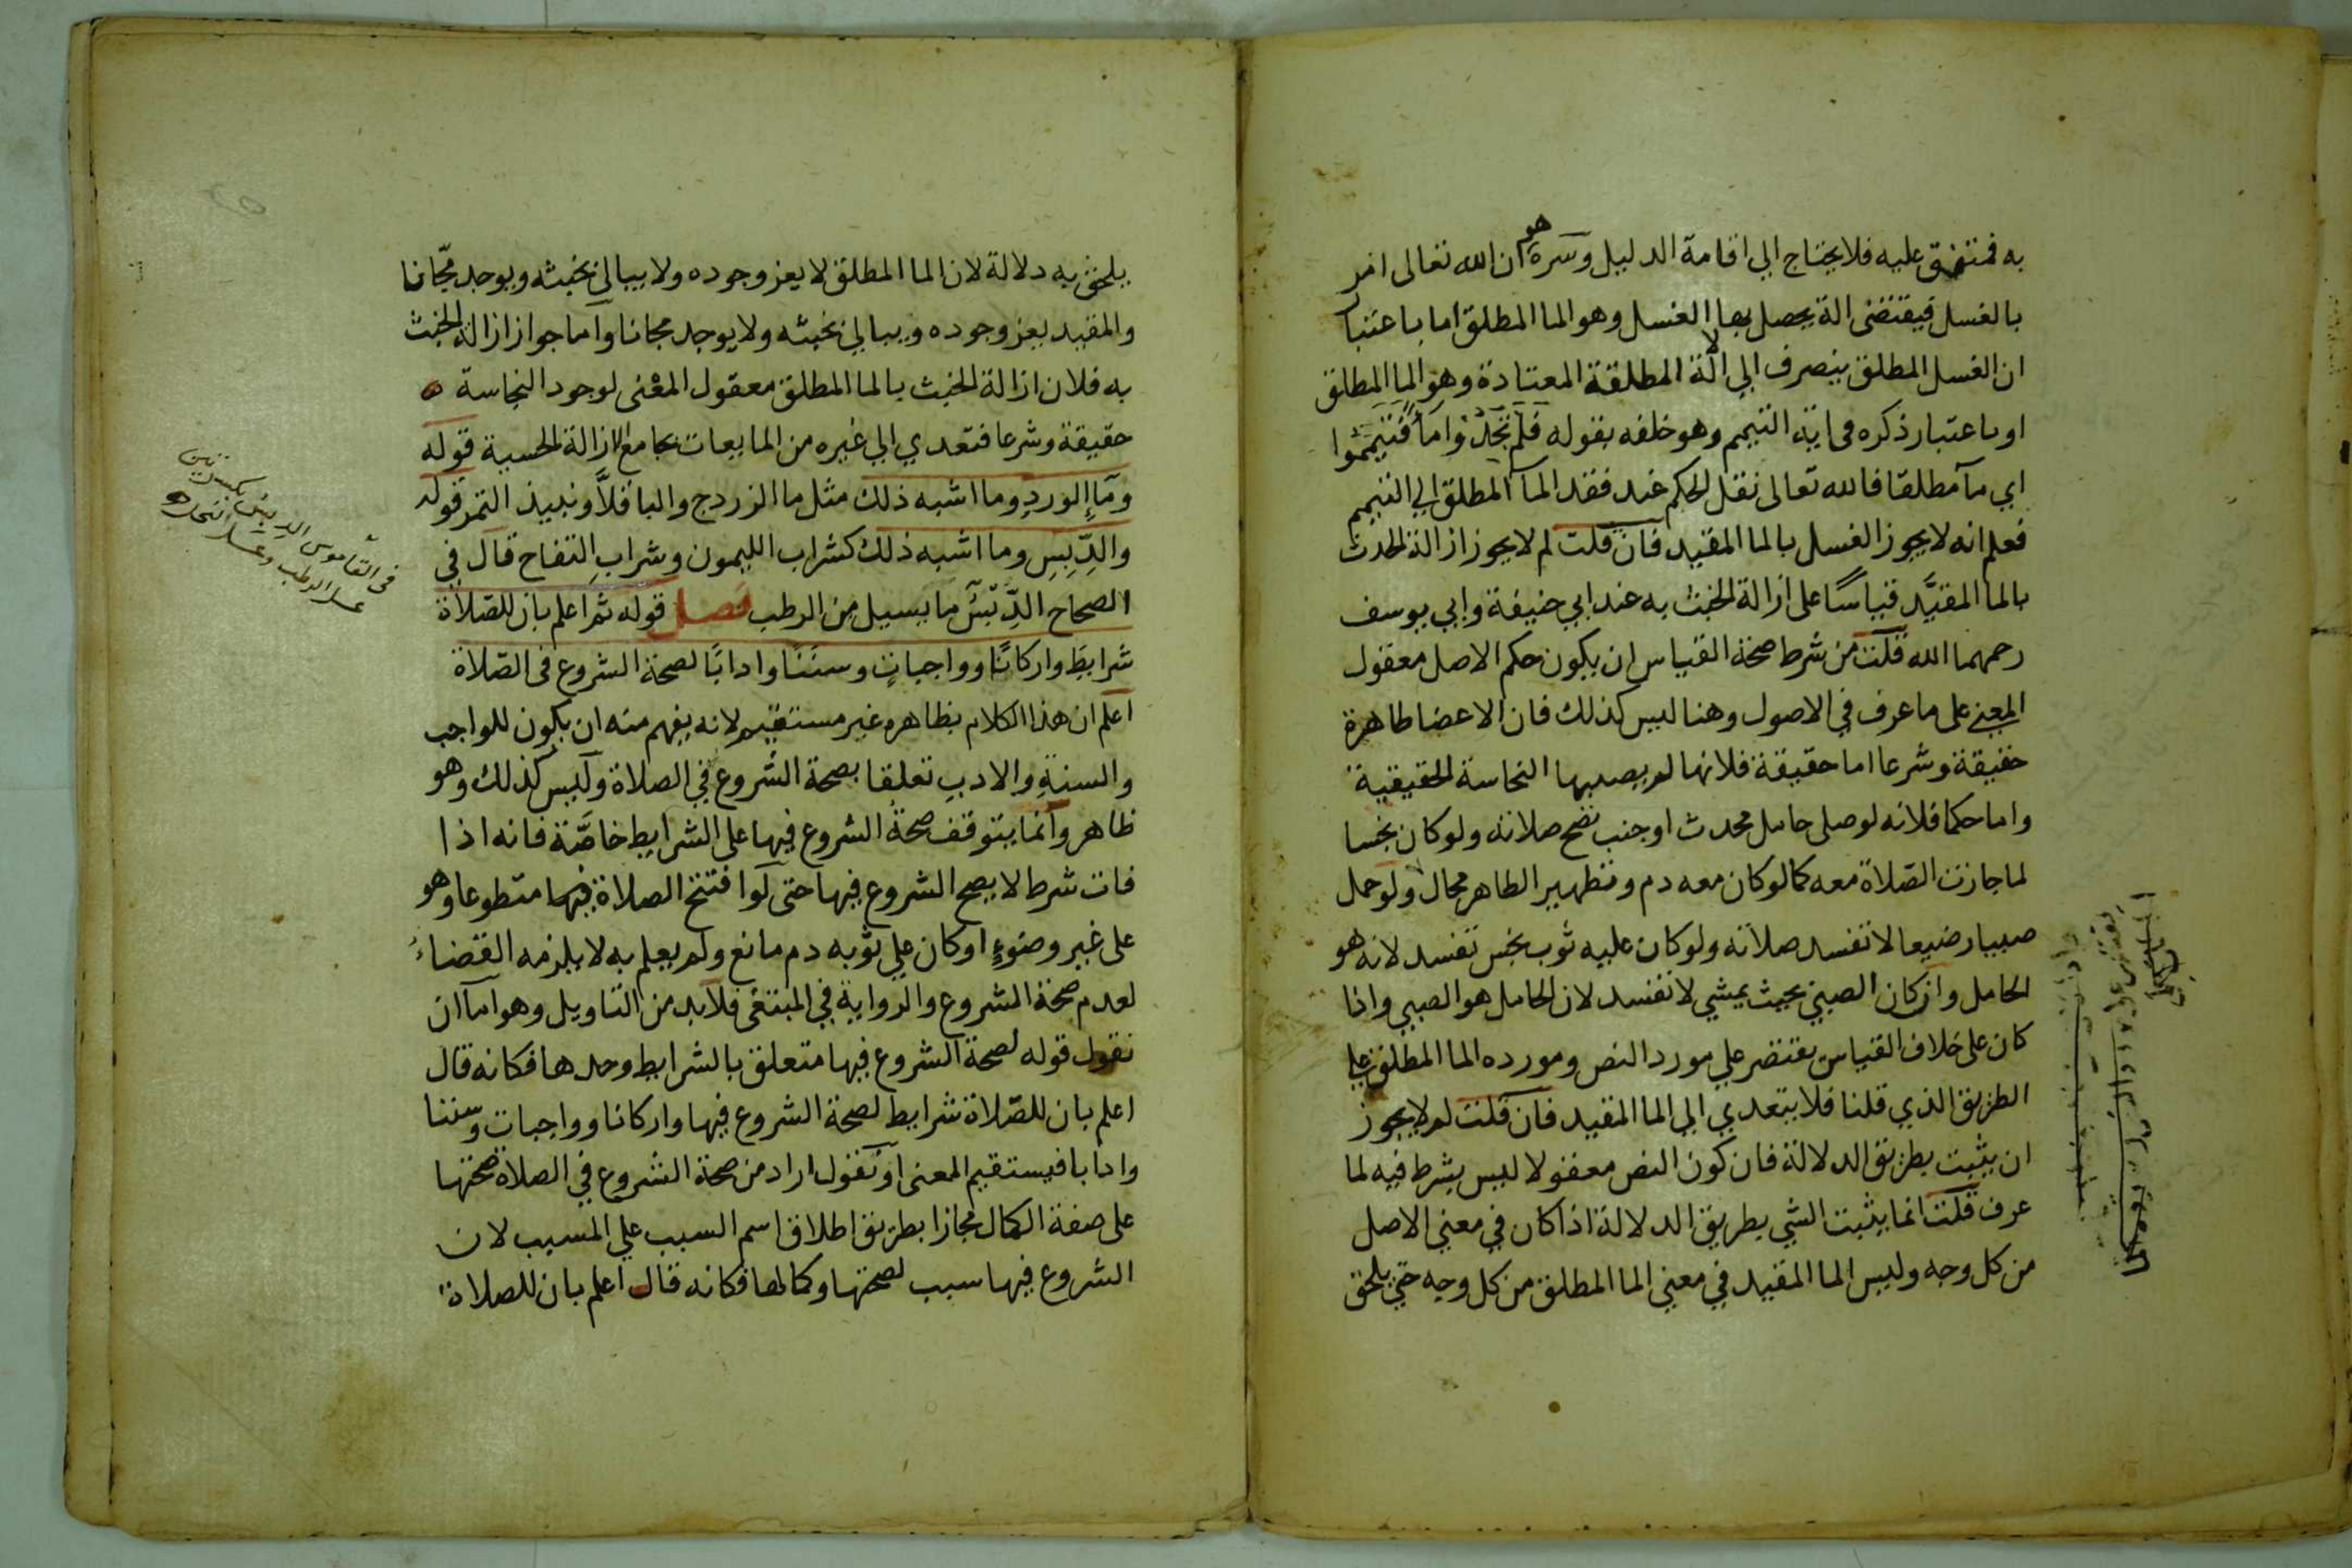 به فمتفق عليه فلا يحتاج الي اقامة الدليل وسره هو ان الله تعالى امر
بالغسل فيقتضى الة يحصل بها الغسل وهو الما المطلق اما باعتبار
ان الغسل المطلق ينصرف الي الآلة المطلقة المعتادة وهو الما المطلق
او باعتبار ذكره في اية التيمم وهو خلفه بقوله فلم تجدوا مأً فتيمموا
اي مآ مطلقا فالله تعالى نقل الحكم عند فقد المآ المطلق الي التيمم
فعلم انه لا يجوز الغسل بالما المقيد فان قلت لم لا يجوز ازالة الحدث
بالما المقيَّد قياسًا على ازالة الخبث به عند ابي حنيفة وابي يوسف
رحمهما الله قلت من شرط صحة القياس ان يكون حكم الاصل معقول
المعنى على ما عرف في الاصول وهنا ليس كذلك فان الاعضا طاهرة
حقيقة وشرعا اما حقيقة فلانها لم يصبها النجاسة الحقيقية
واما حكما فلانه لو صلى حامل محدث او جنب تصح صلاته ولو كان نجسا
لما جازت الصّلاة معه كما لو كان معه دم وتطهير الطاهر محال ولو حمل
صبيا رضيعا لا تفسد صلاته ولو كان عليه ثوب نجس تفسد لانه هو
الحامل وان كان الصبي بحيث يمشي لا تفسد لان الحامل هو الصبي واذا
كان على خلاف القياس يقتصر علي مورد النص ومورده الما المطلق علي
الطريق الذي قلنا فلا يتعدي الي الما المقيد فان قلت لم لا يجوز
ان يثبت بطريق الدلالة فان كون النص معقولا ليس بشرط فيه لما
عرف قلت انما يثبت الشي بطريق الدلالة اذا كان في معني الاصل
من كل وجه وليس الما المقيد في معني الما المطلق من كل وجه حتي يلحق
يلحق به دلالة لان الما المطلق لا يعز وجوده ولا يبالى بخبثه ويوجد مجّانا
والمقيد يعز وجوده ويبالي بخبثه ولا يوجد مجانا واما جواز ازالة الخبث
به فلان ازالة الخبث بالما المطلق معقول المعْنى لوجود النجاسة
حقيقة وشرعا فتعدي الي غيره من المايعات بجامع الازالة الحسية قوله
ومآءِ الوردِ وما اشبه ذلك مثل ما الزردج والباقلَّا ونبيذ التمر قوله
والدِّبِسِ وما اشبه ذلك كشراب الليمون وشرابِ التفاح قال في
الصحاح الدِّبْسُ ما يسيل من الرطب فصل قوله ثم اعلم بان للصّلاة
شرايطَ واركانًا وواجباتٍ وسننًا وادابًا لصحة الشروع في الصّلاة
اعلم ان هذا الكلام بظاهره غير مستقيم لانه يفهم منه ان يكون للواجب
والسنةِ والادبِ تعلقا بصحة الشروع في الصلاة وليس كذلك وهو
ظاهر وانما يتوقف صحة الشروع فيها على الشرايط خاصَّة فانه اذا
فات شرط لا يصح الشروع فيها حتى لو افتتح الصلاة فيها متطوعا وهو
على غير وضوءٍ او كان علي ثوبه دم مانع ولم يعلم به لا يلزمه القضاءُ
لعدم صحة الشروع والرواية في المبتغى فلابد من التاويل وهو اما ان
نقول قوله لصحة الشروع فيها متعلق بالشرايط وحدها فكانه قال
اعلم بان للصّلاة شرايط لصحة الشروع فيها واركانا وواجبات وسننا
وادابا فيستقيم المعنى او نقول اراد من صحة الشروع في الصلاة صحتها
على صفة الكمال مجازا بطريق اطلاق اسم السبب علي المسبب لان
الشروع فيها سبب لصحتها وكمالها فكانه قال اعلم بان للصلاة
في القاموس الدبس بكسرتين
عسل الرطب وعسل النحل